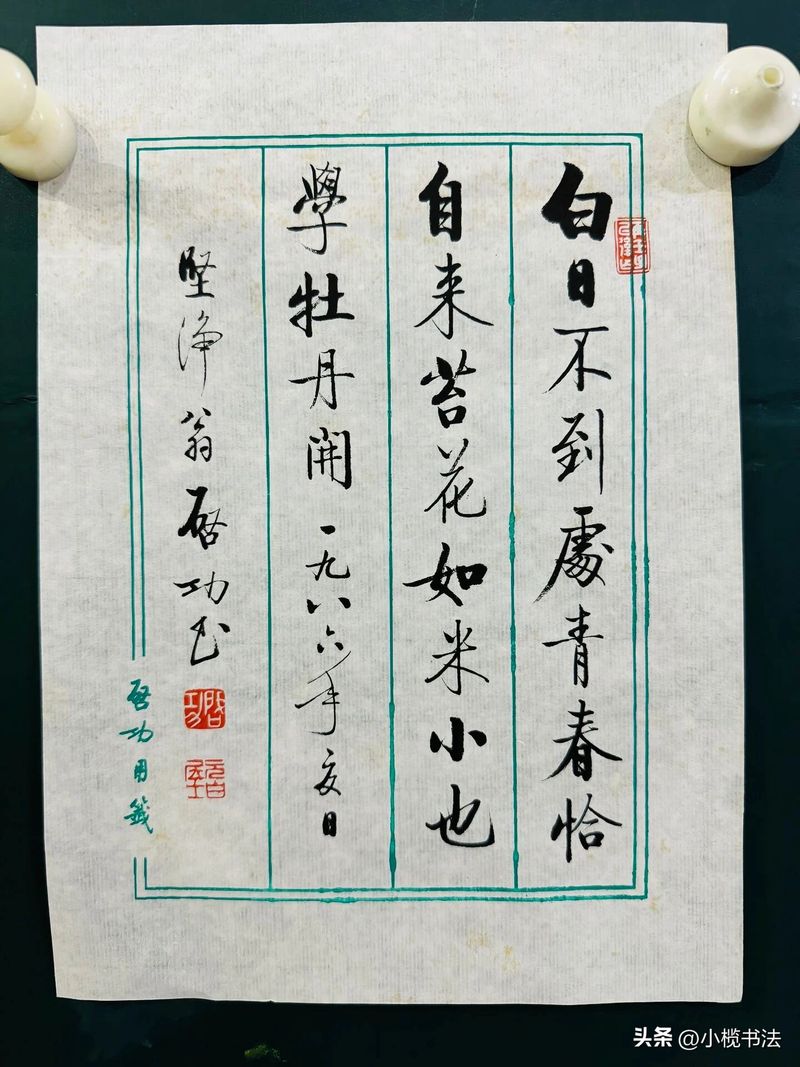 白日不到處青春恰
自来苔花如米小也
學牡丹開一九八六年夏日
堅淨翁启功书
启功用箋
启功
头条 @小榄书法